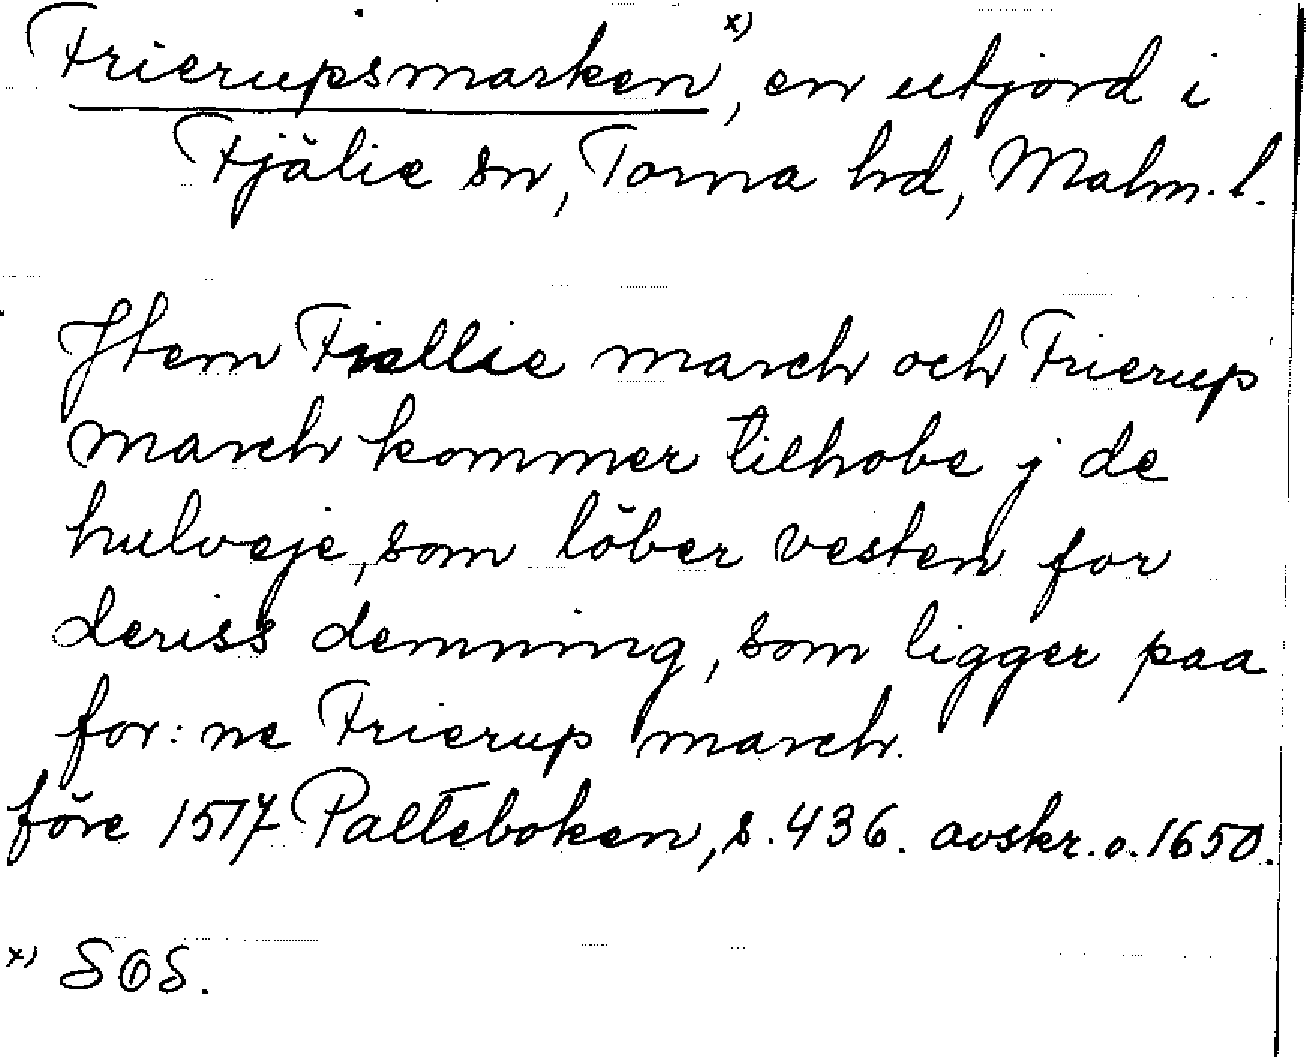 Frierupsmarken, x) en utjord i
Fjälie sn, Torna hd, Malm. l.
Jtem Fiellie march och Frierup
march kommer tilhobe j de
hulveje, som löber vesten for
deriss demning, som ligger paa
for: ne Frierup march.
före 1517 Palteboken, s. 436. avskr. o. 1650.
x) SOS.